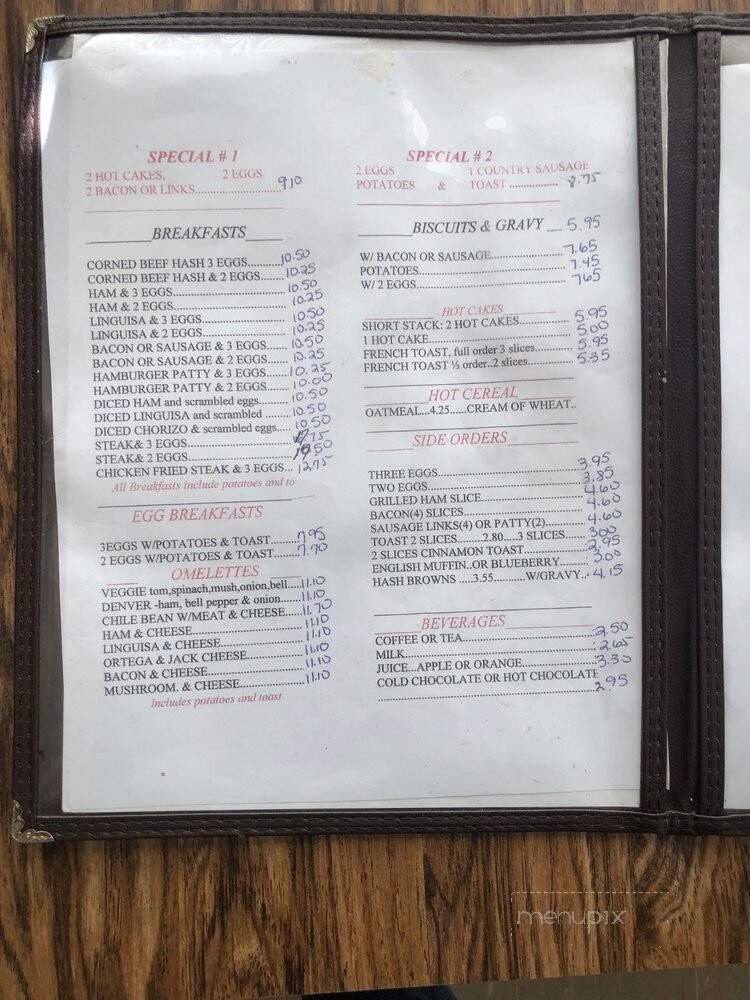 SPECIAL # 1
2 HOT CAKES, 2 EGGS
2 BACON OR LINKS.................... 9.10
BREAKFASTS
CORNED BEEF HASH 3 EGGS.......... 10.50
CORNED BEEF HASH & 2 EGGS....... 10.25
HAM & 3 EGGS............................... 10.50
HAM & 2 EGGS............................... 10.25
LINGUISA & 3 EGGS....................... 10.50
LINGUISA & 2 EGGS....................... 10.25
BACON OR SAUSAGE & 3 EGGS..... 10.50
BACON OR SAUSAGE & 2 EGGS..... 10.25
HAMBURGER PATTY & 3 EGGS...... 10.25
HAMBURGER PATTY & 2 EGGS...... 10.00
DICED HAM and scrambled eggs....... 10.50
DICED LINGUISA and scrambled ....... 10.50
DICED CHORIZO & scrambled eggs.... 10.50
STEAK& 3 EGGS.............................
STEAK& 2 EGGS.............................
CHICKEN FRIED STEAK & 3 EGGS... 12.75
All Breakfasts include potatoes and to
EGG BREAKFASTS
3EGGS W/POTATOES & TOAST....... 7.95
2 EGGS W/POTATOES & TOAST...... 7.70
OMELETTES
VEGGIE tom,spinach,mush,onion,bell..... 11.10
DENVER -ham, bell pepper & onion....... 11.10
CHILE BEAN W/MEAT & CHEESE..... 11.70
HAM & CHEESE............................... 11.10
LINGUISA & CHEESE....................... 11.10
ORTEGA & JACK CHEESE................ 11.10
BACON & CHEESE........................... 11.10
MUSHROOM. & CHEESE................... 11.10
Includes potatoes and toast
SPECIAL # 2
2 EGGS 1 COUNTRY SAUSAGE
POTATOES & TOAST ............... 8.75
BISCUITS & GRAVY 5.95
W/ BACON OR SAUSAGE................... 7.65
POTATOES....................................... 7.45
W/ 2 EGGS....................................... 7.65
HOT CAKES
SHORT STACK: 2 HOT CAKES............. 5.95
1 HOT CAKE..................................... 5.00
FRENCH TOAST, full order 3 slices........... 5.95
FRENCH TOAST ½ order..2 slices............. 5.35
HOT CEREAL
OATMEAL...4.25......CREAM OF WHEAT..
SIDE ORDERS
THREE EGGS..................................... 3.95
TWO EGGS....................................... 3.85
GRILLED HAM SLICE......................... 4.60
BACON(4) SLICES............................... 4.60
SAUSAGE LINKS(4) OR PATTY(2)......... 4.60
TOAST 2 SLICES........2.80.....3 SLICES..... 3.00
2 SLICES CINNAMON TOAST............... 2.95
ENGLISH MUFFIN..OR BLUEBERRY....... 3.00
HASH BROWNS .....3.55..........W/GRAVY.. 4.15
BEVERAGES
COFFEE OR TEA............................... 2.50
MILK............................................... 2.65
JUICE...APPLE OR ORANGE................. 3.30
COLD CHOCOLATE OR HOT CHOCOLATE
..................................................... 2.95
menupix